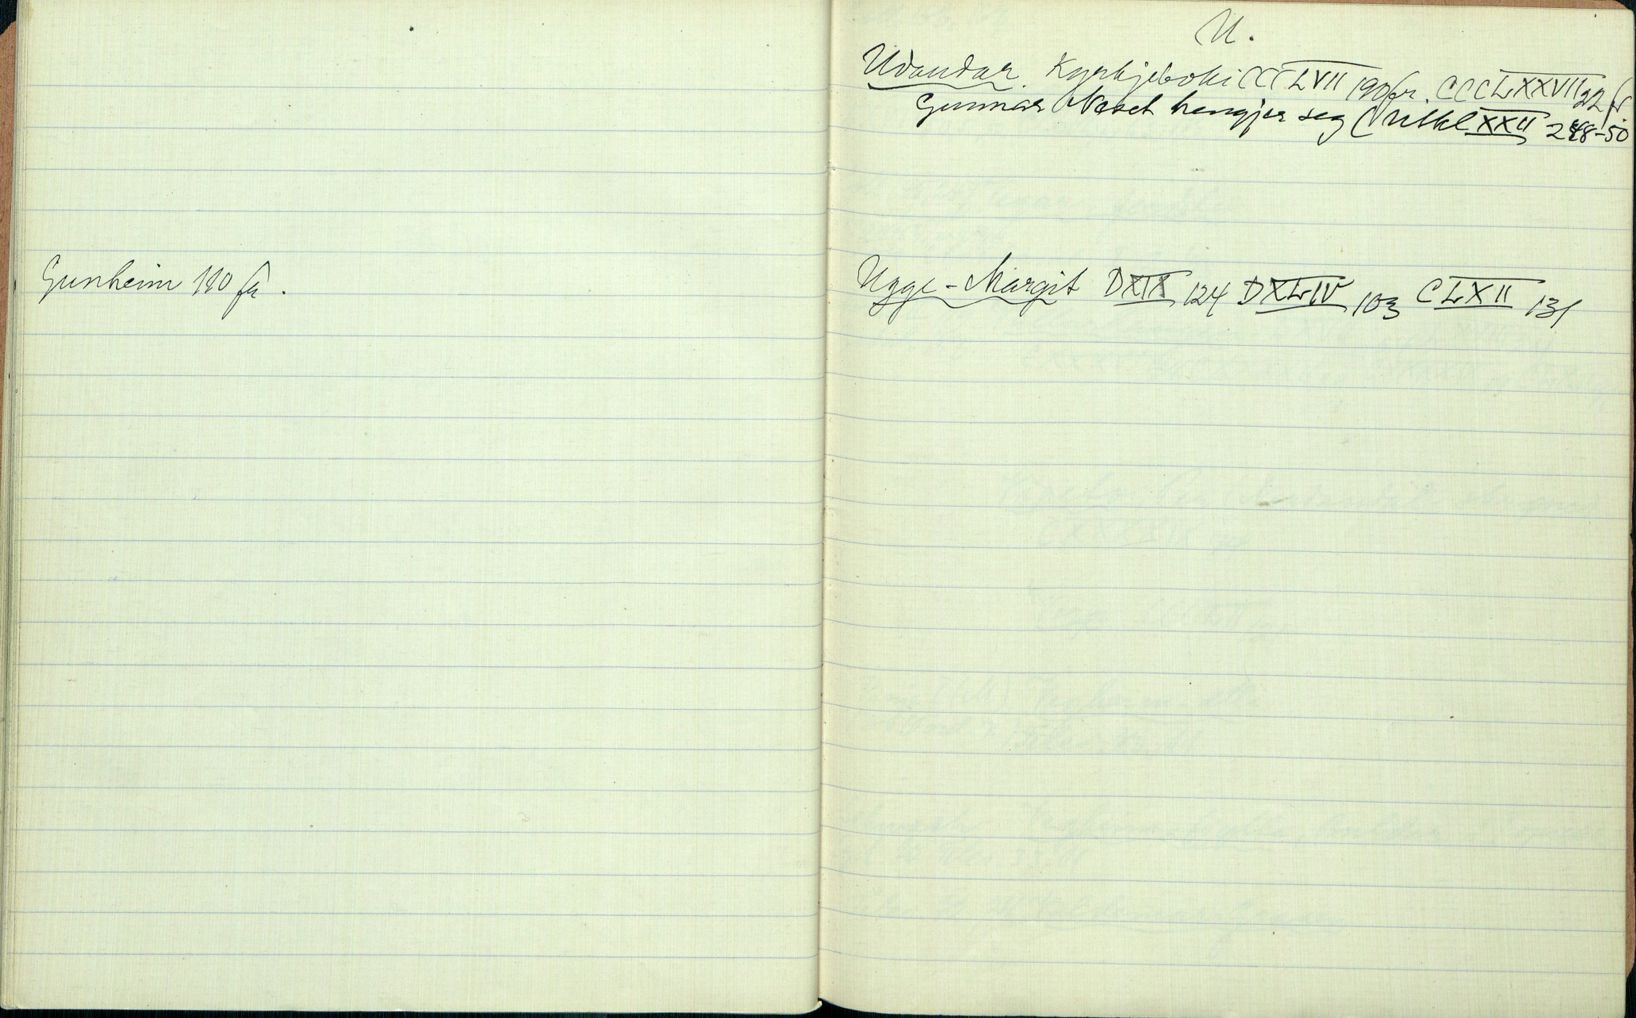 Gunheim 110 fr.
U.
Udandar. Kyrkjeboki CCCLVII 190 fr. CCCLXXVII 22 fr
Gunnar Neset hengjer seg ( XXII 248-50
Ugge-Margit DXIX 124 DXLIV 103 CLXII 131